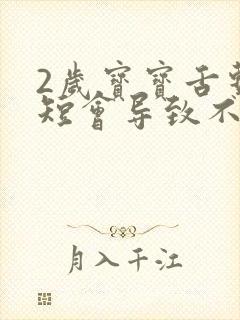 2歲寶寶舌
短會导致不
月入千江